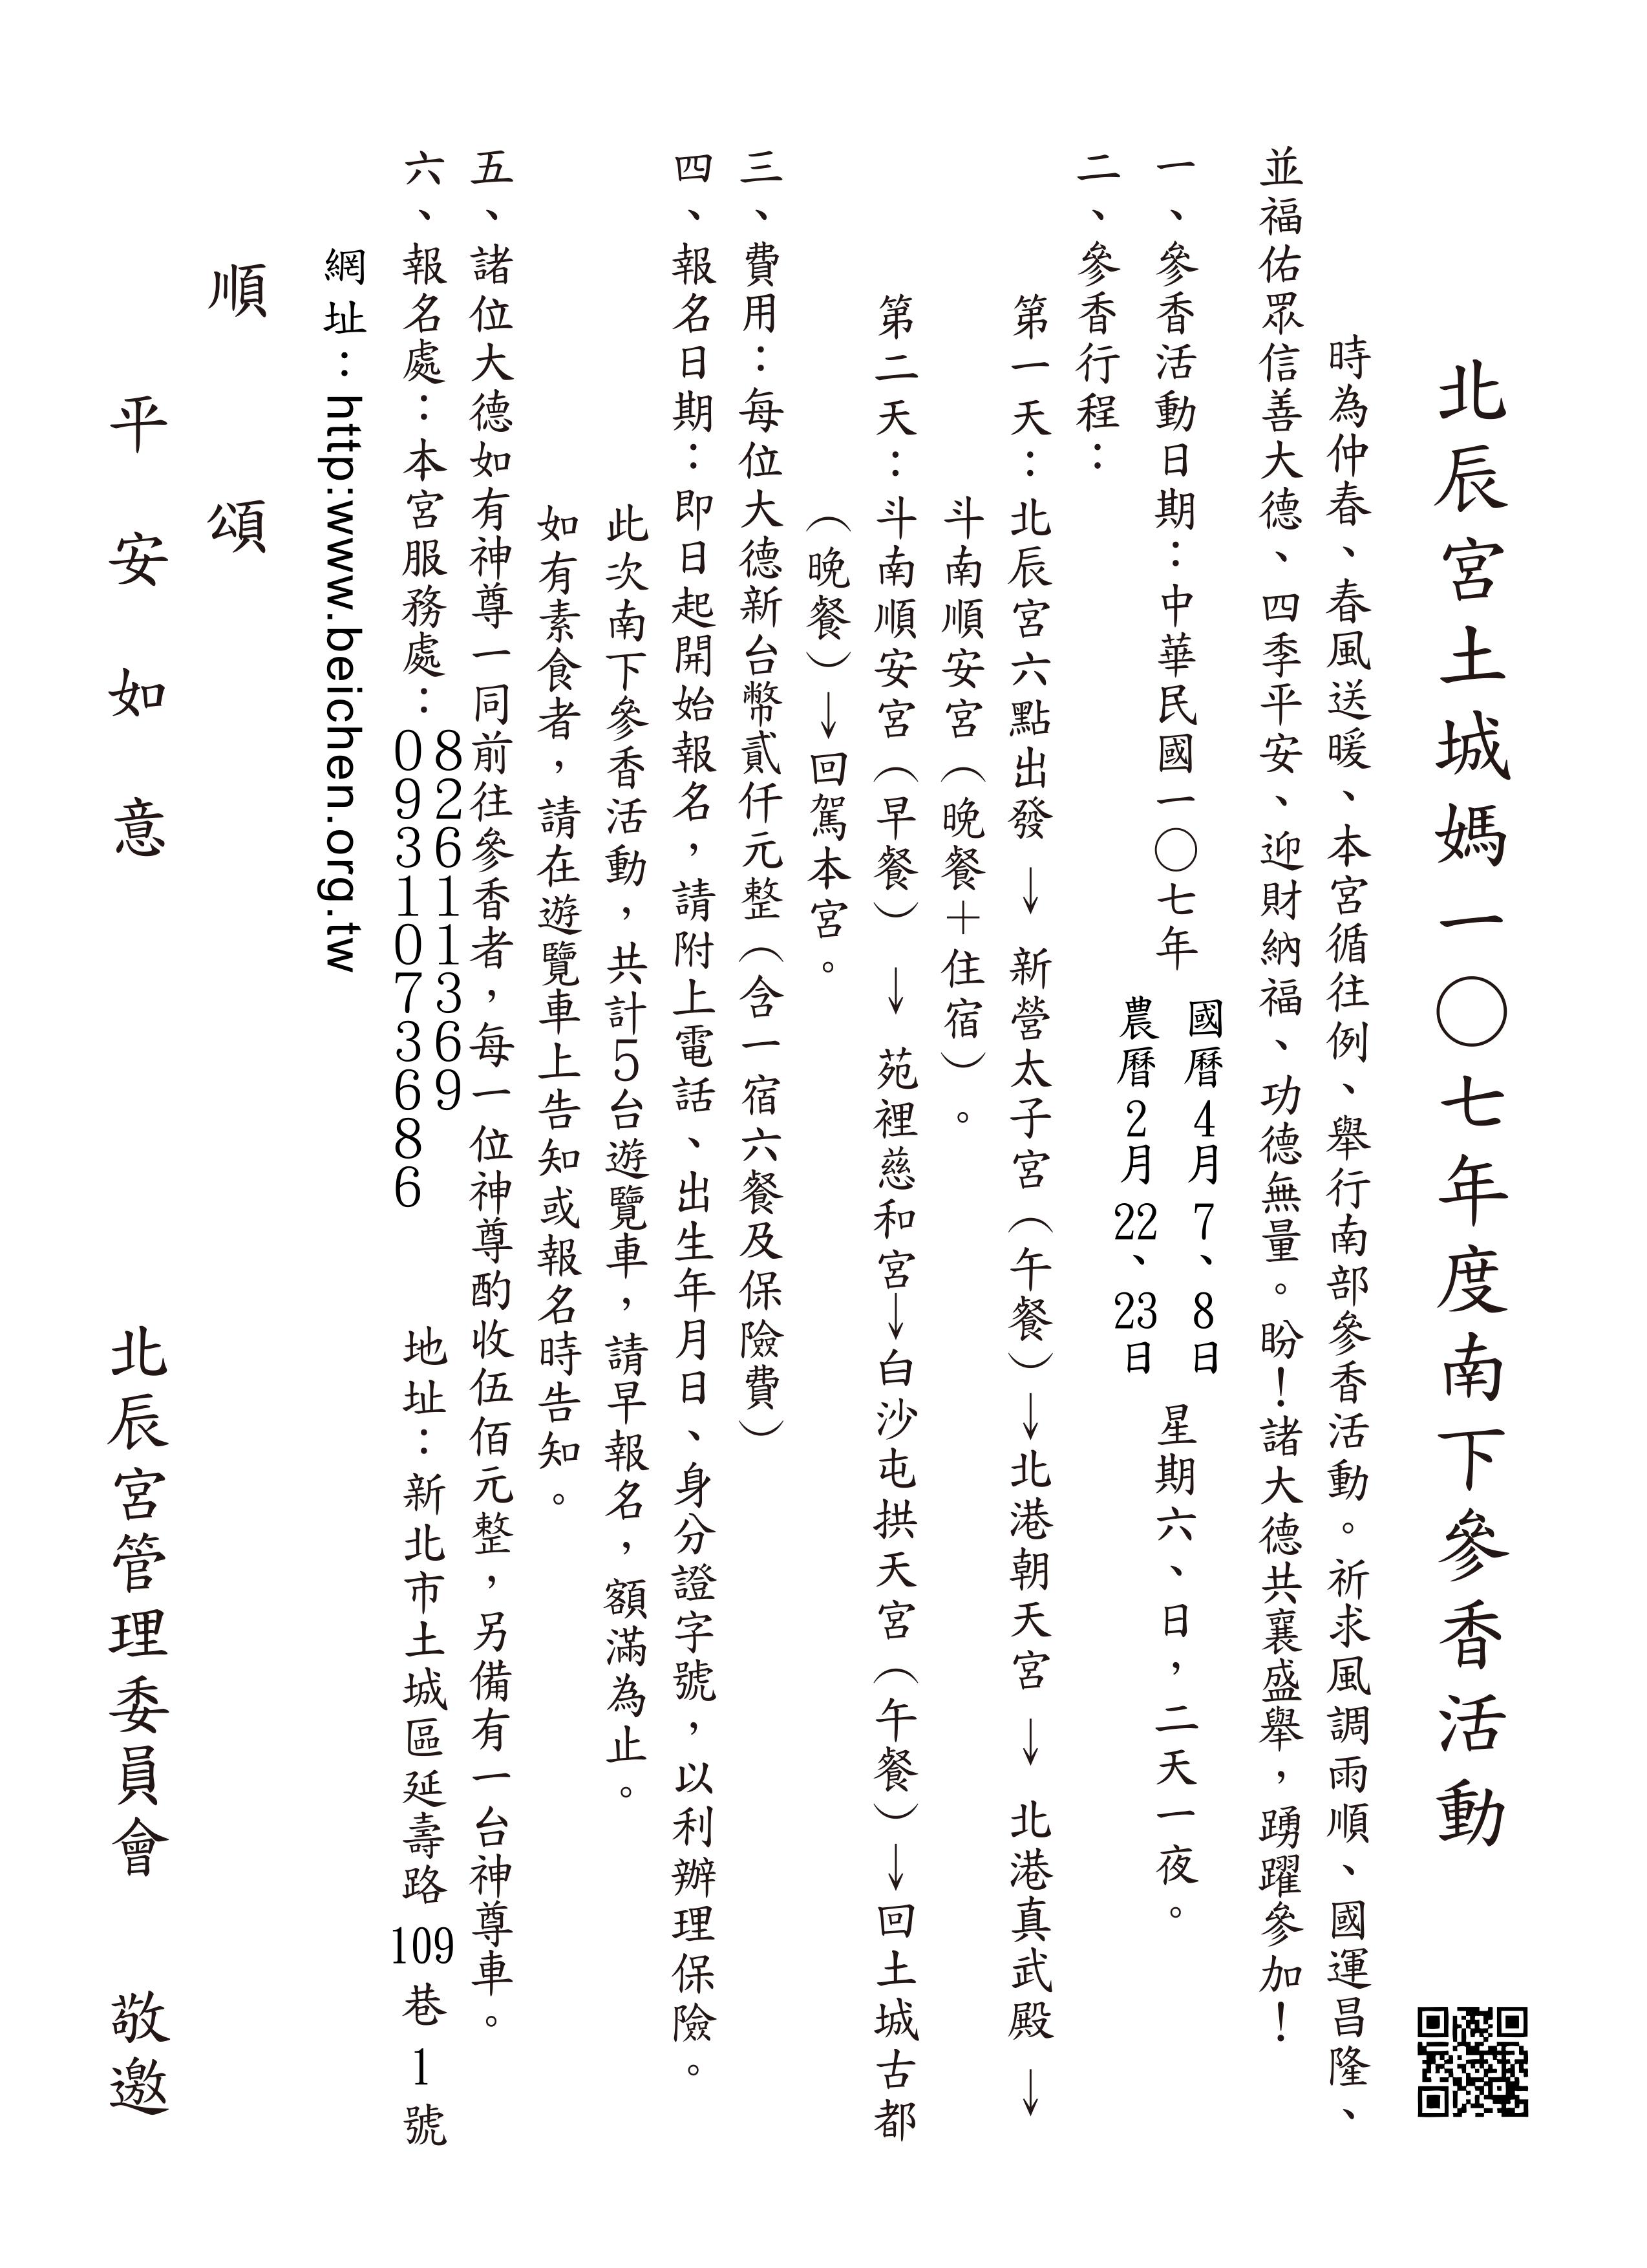 北辰宮土城媽一〇七年度南下參香活動
時為仲春、春風送暖、本宮循往例、舉行南部參香活動。祈求風調雨順、國運昌隆、
並福佑眾信善大德、四季平安、迎財納福、功德無量。盼!諸大德共襄盛舉,踴躍參加!
一、參香活動日期:中華民國一〇七年 國曆4月7、8日 農曆2月22、23日 星期六、日,二天一夜。
二、參香行程:
第一天:北辰宮六點出發 → 新營太子宮(午餐)→北港朝天宮 → 北港真武殿 →
斗南順安宮(晚餐+住宿)。
第二天:斗南順安宮(早餐) → 苑裡慈和宮→白沙屯拱天宮(午餐)→回土城古都
(晚餐)→回駕本宮。
三、費用:每位大德新台幣貳仟元整(含一宿六餐及保險費)
四、報名日期:即日起開始報名,請附上電話、出生年月日、身分證字號,以利辦理保險。
此次南下參香活動,共計5台遊覽車,請早報名,額滿為止。
如有素食者,請在遊覽車上告知或報名時告知。
五、諸位大德如有神尊一同前往參香者,每一位神尊酌收伍佰元整,另備有一台神尊車。
六、報名處:本宮服務處:82611369 0931073686 地址:新北市土城區延壽路109巷1號
網址:http:www.beichen.org.tw
順 頌
平安如意 北辰宮管理委員會 敬邀